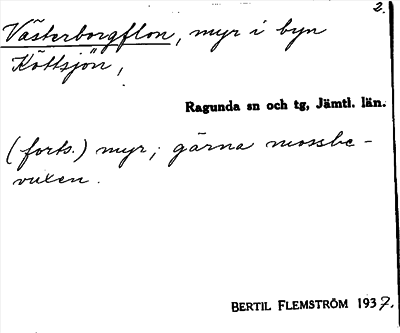 2.
Västerborgflon, myr i byn
Köttsjön,
Ragunda sn och tg, Jämtl. län.
(forts.) myr; gärna mossbe-
vuxen.
BERTIL FLEMSTRÖM 1937.